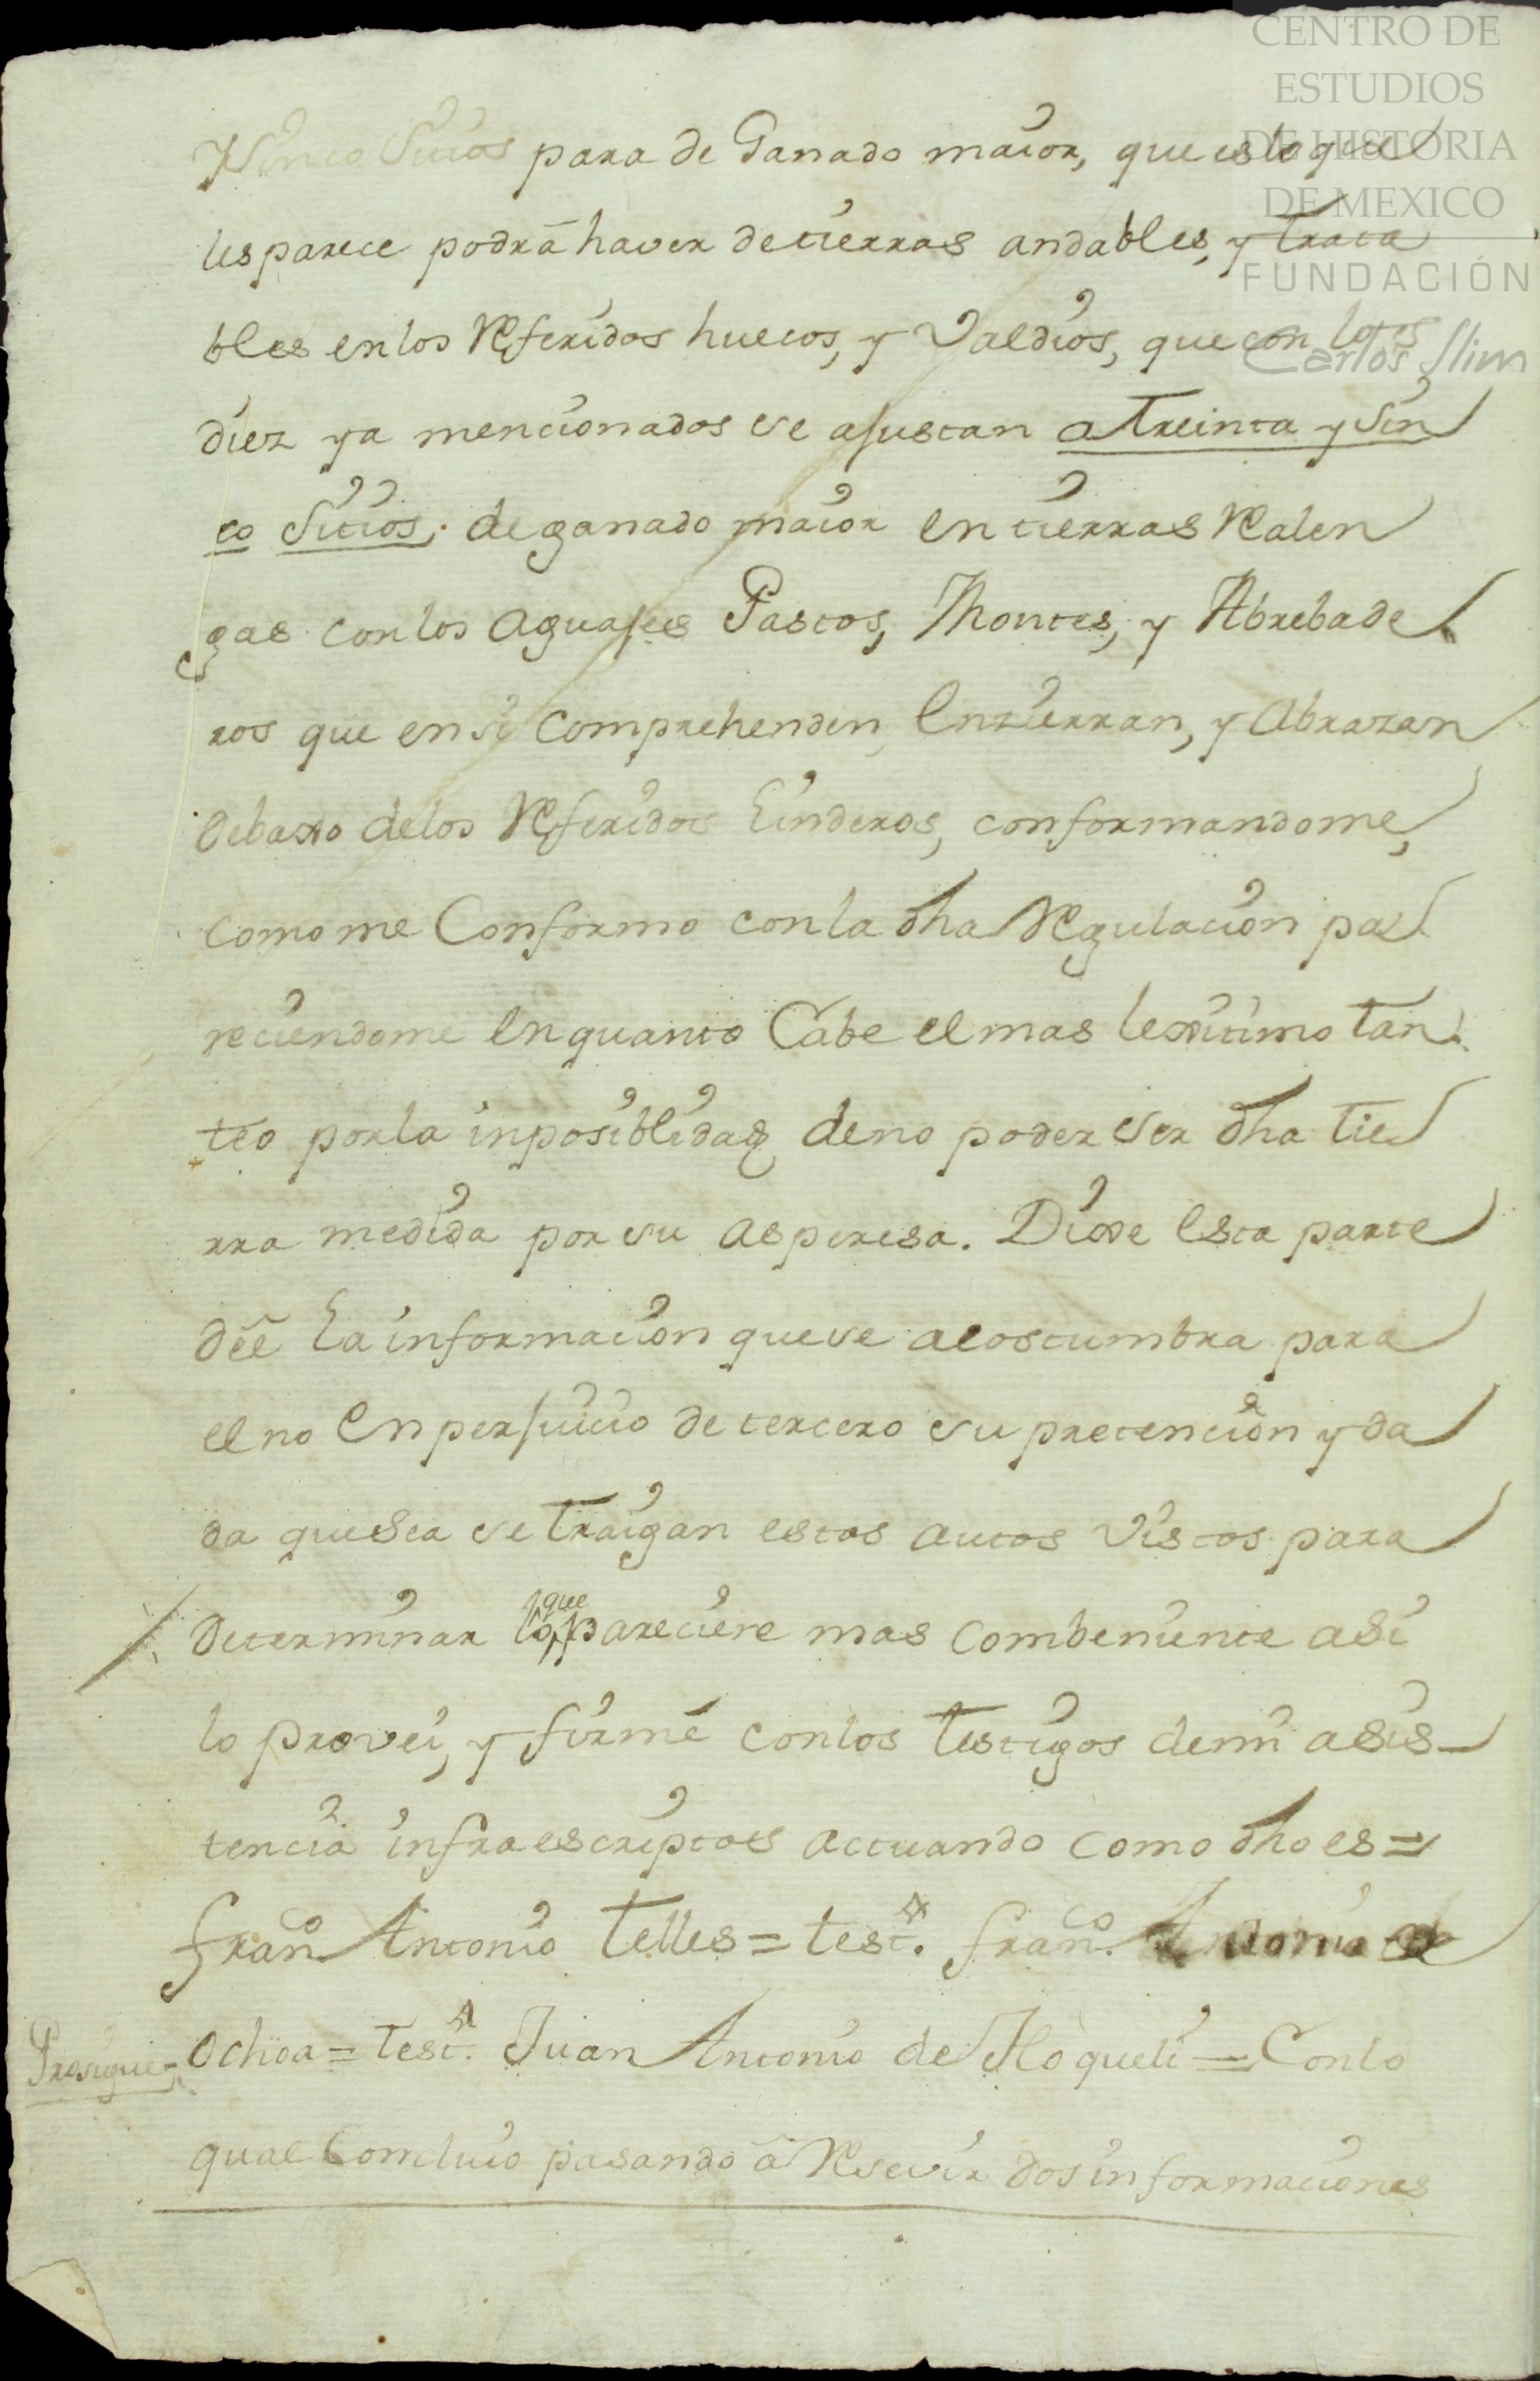 CENTRO DE
ESTUDIOS
DE HISTORIA
DE MEXICO
FUNDACIÓN
Carlos Slim
Ysinco Sitios para de Ganado maior, que es lo que
les parece podrà haver de tierras andables, y trata
bles en los Referidos huecos, y Valdios, que con los
diez ya mencionados se ajustan a Treinta y Sin
co Sitios, de ganado maior en tierras Realen
gas con los aguajes Pastos, Montes, y Abrebade
ros que en si comprehenden, Enzierran, y Abrazan
debaxo de los Referidos Linderos, conformandome,
como me Conformo con la dha Regulacion pa
reciendome en quanto Cabe el mas lexitimo tan
teo por la inposiblidad de no poder ser dha tie
rra medida por su asperesa. Dixe Esta parte
déé La informacion que se acostumbra para
el no En perjuicio de tercero su pretencion y da
da que sea se traigan estos autos Vistos para
Determinar lo que pareciere mas combeniente asi
lo provei, y firmé con los testigos de mi asis-
tencia infraescriptos actuando como dho es =
Franco Antonio Telles = testo. Franco. Antonio de
Ochoa = testo. Juan Antonio de Iloqueti = Conlo
Prosigue =
qual Concluio pasando â Resevir dos informaciones